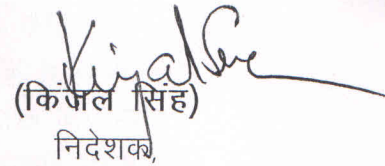 (किंजल सिंह)
निदेशक,